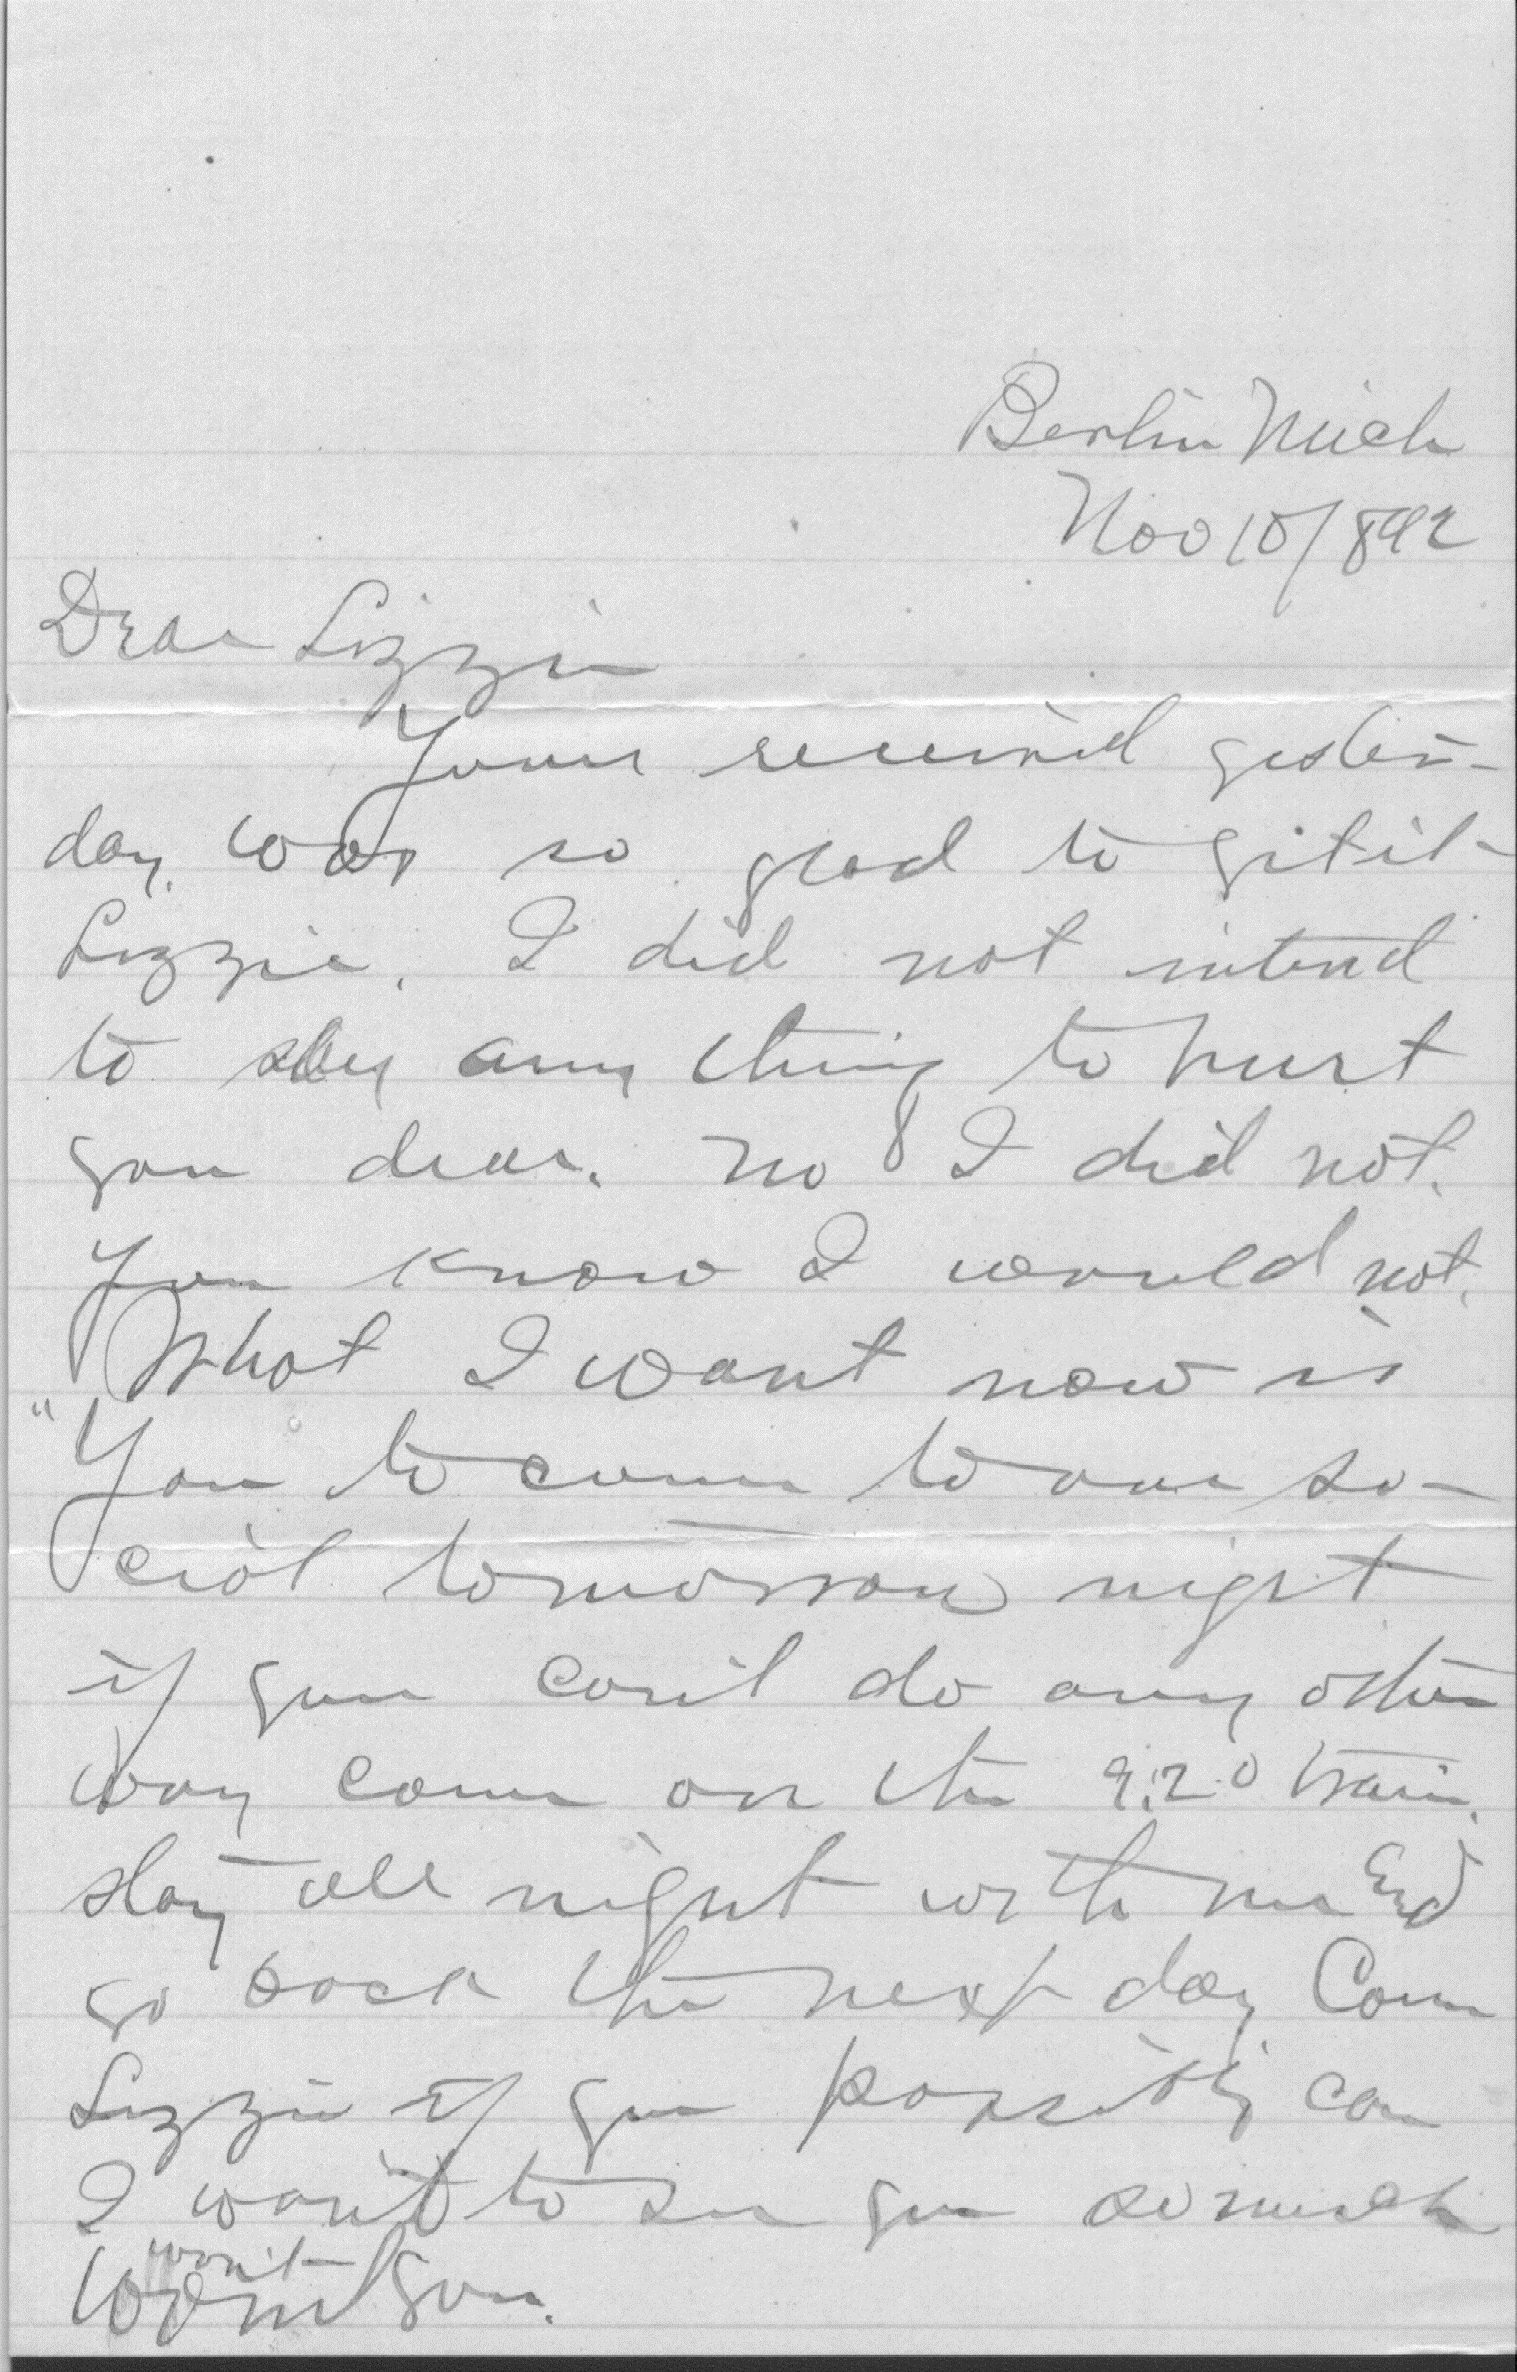 Berlin Mich
Nov 10/892
Dear Lizzie
Yours received yester-
day. was so glad to get it
Lizzie. I did not intend
to say any thing to hurt
you dear. no I did not.
You know I would not.
What I want now is
"You to come to our so-
cial tomorrow night
if you can't do any other
way come on the 9:20 train.
stay all night with me and
go back the next day Come
Lizzie if you possibly can
I want to see you so much
won't
you.